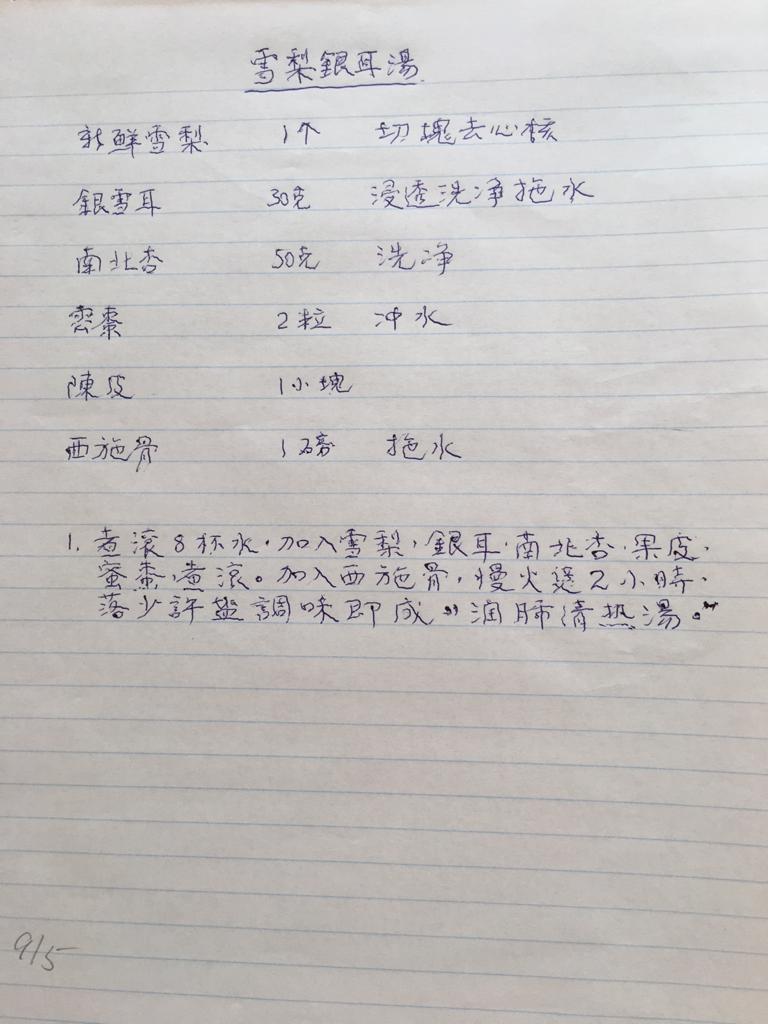 雪梨銀耳湯
新鮮雪梨 1个 切塊去心核
銀雪耳 30克 浸透洗净拖水
南北杏 50克 洗净
蜜棗 2粒 冲水
陳皮 1小塊
西施骨 1磅 拖水
1. 煮滾8杯水,加入雪梨,銀耳,南北杏,果皮,
蜜棗,煮滾。加入西施骨,慢火煲2小時,
落少許盐調味即成。"润肺清热湯。"
9/5